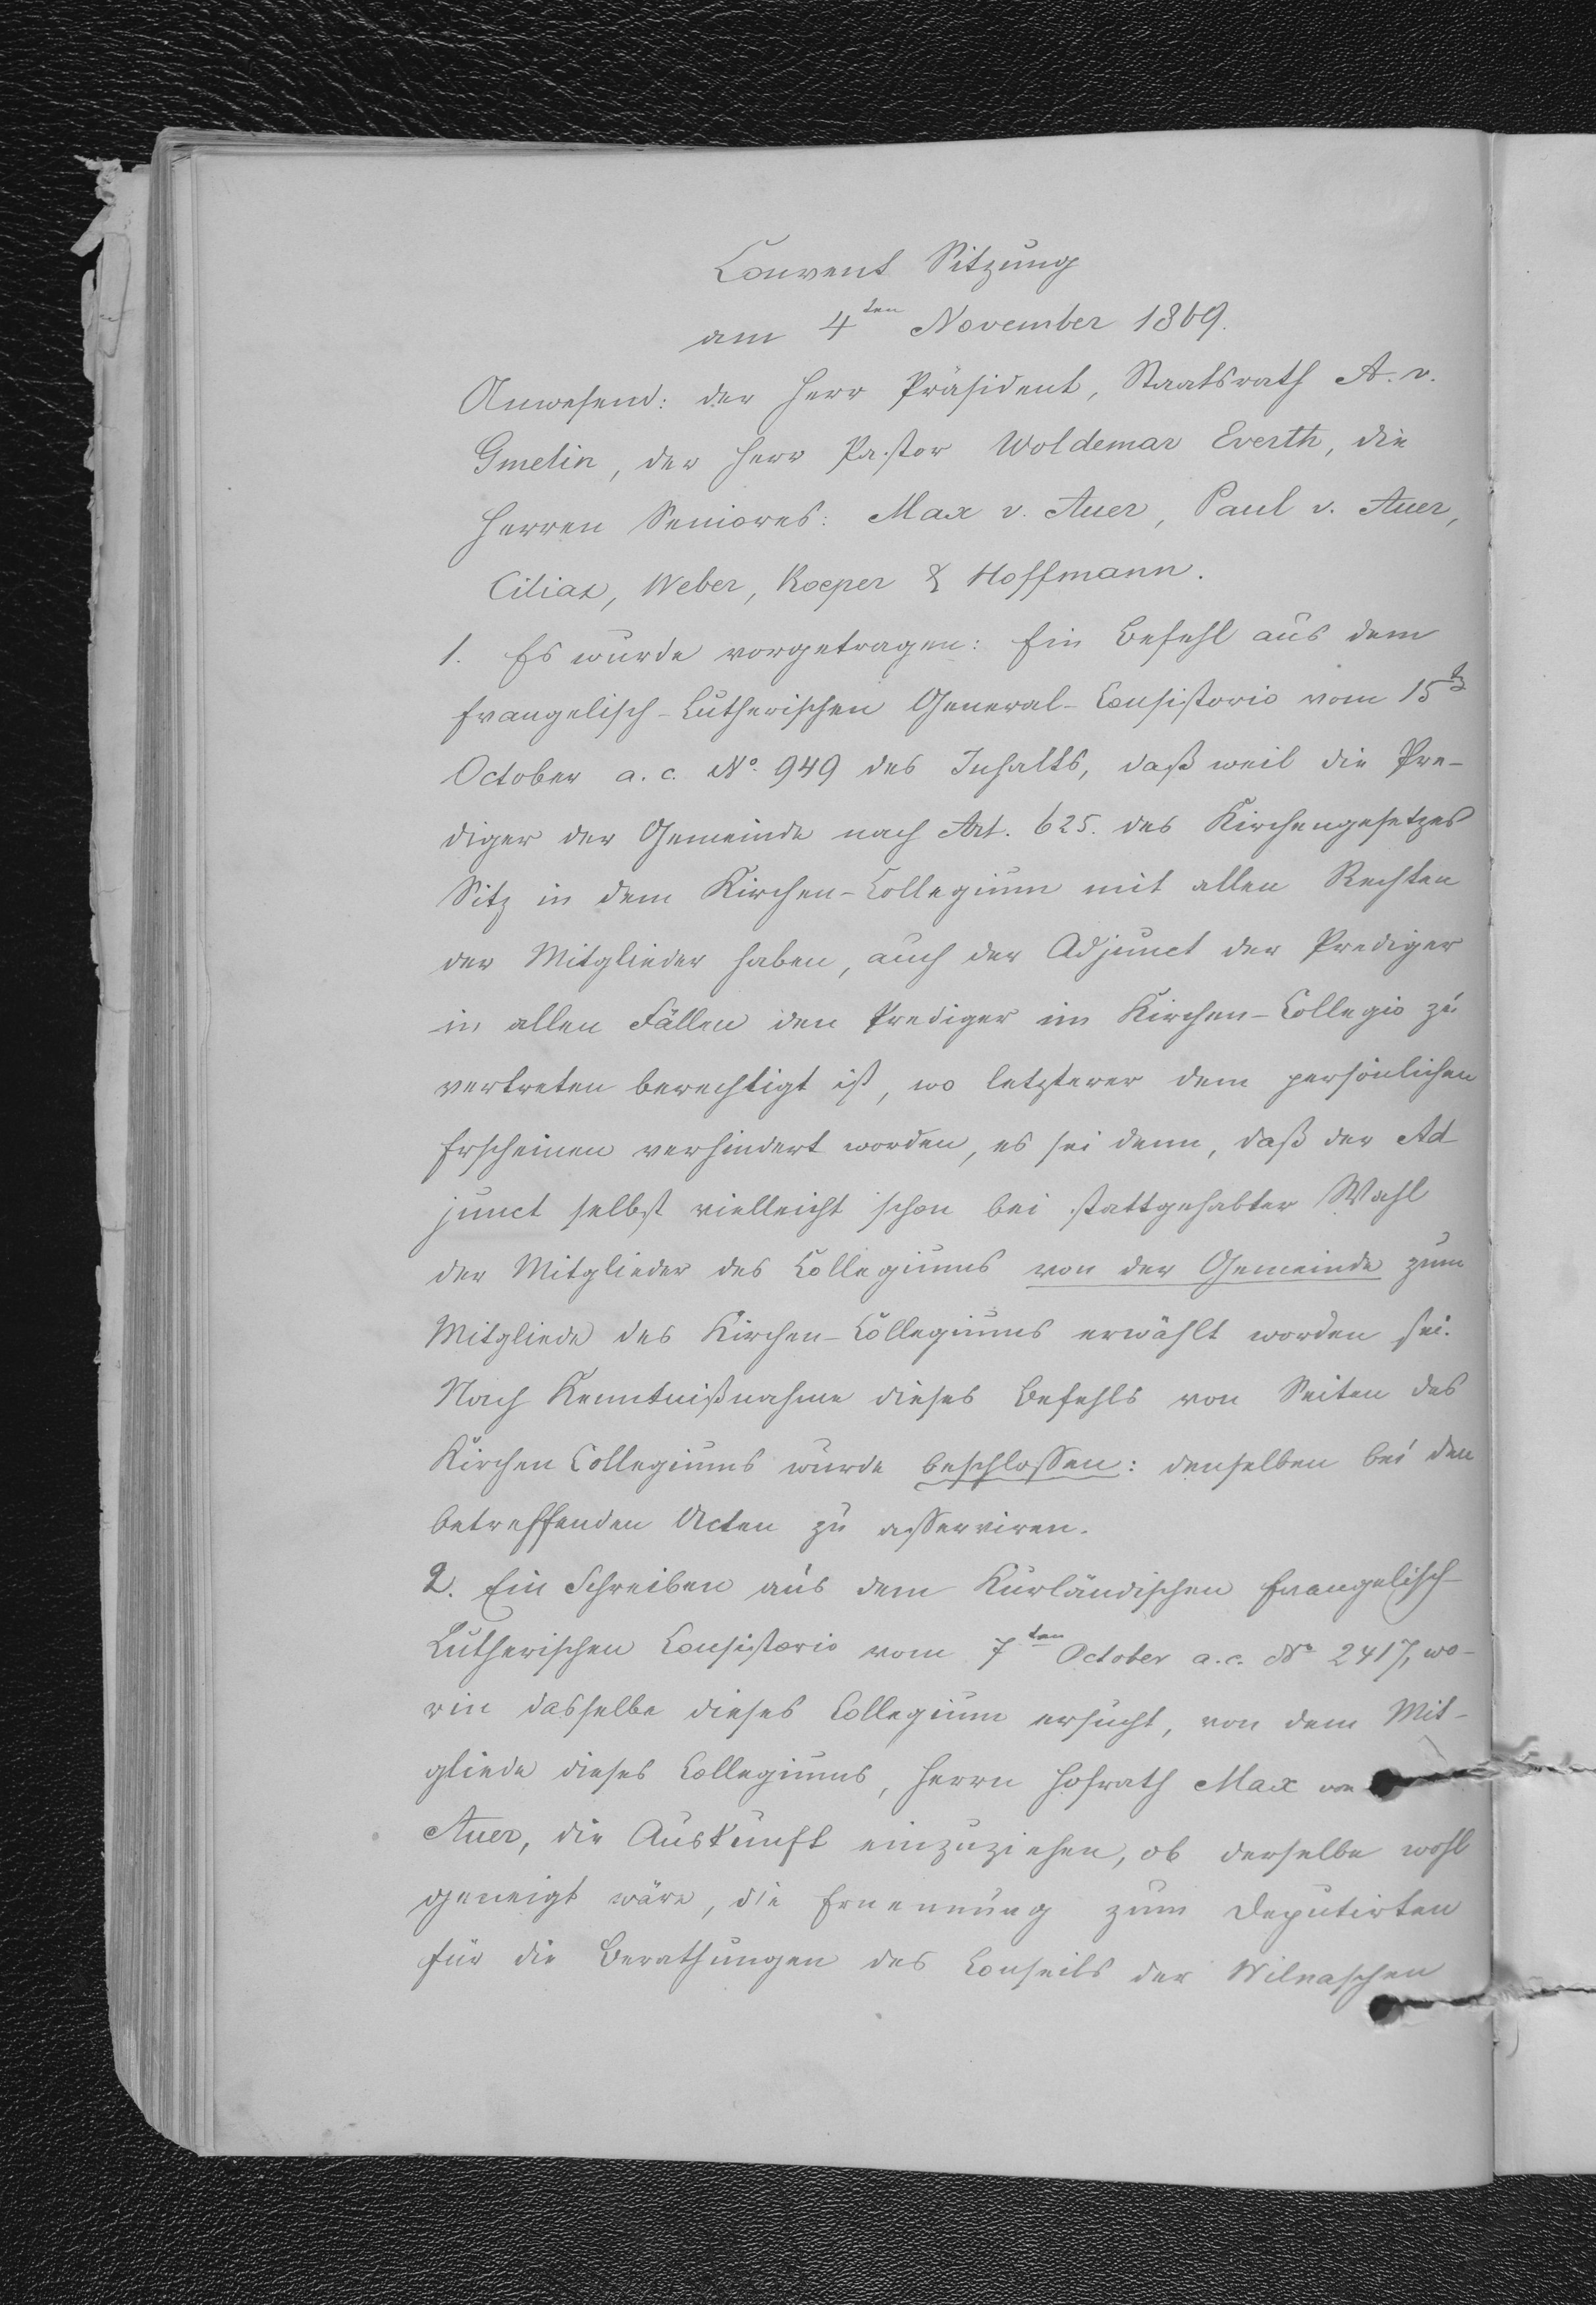 Convent Sitzung
am 4ten November 1869.
Anwesend: der Herr Präsident, Staatsrath A. v.
Gmelin, der Herr Pastor Woldemar Everth, die
Herren Seniores: Max v. Auer, Paul v. Auer,
Ciliax, Weber, Roeper & Hoffmann.
1. Es wurde vorgetragen: Ein Befehl aus dem
Evangelisch-Lutherischen General-Consistorio vom 15ten
October a. c. No. 949 des Inhalts, daß weil die Pre-
diger der Gemeinde nach Art. 625. des Kirchengesetzes
Sitz in dem Kirchen-Collegium mit allen Rechten
der Mitglieder haben, auch der Adjunct der Prediger
in allen Fällen den Prediger im Kirchen-Collegio zu
vertreten berechtigt ist, wo letzterer dem persönlichen
Erscheinen verhindert worden, es sei denn, daß der Ad
junct selbst vielleicht schon bei stattgehabter Wahl
der Mitglieder des Collegiums von der Gemeinde zum
Mitgliede des Kirchen-Collegiums erwählt worden sei.
Nach Kenntnißnahme dieses Befehls von Seiten des
Kirchen Collegiums wurde beschlossen: denselben bei den
betreffenden Acten zu asserviren.
2. Ein Schreiben aus dem Kurländischen Evangelisch-
Lutherischen Consistorio vom 7ten October a. c. No 2417, wo-
rin dasselbe dieses Collegium ersucht, von dem Mit-
gliede dieses Collegiums, Herrn Hofrath Max von
Auer, die Auskunft einzuziehen, ob derselbe wohl
geneigt wäre, die Ernennung zum Deputirten
für die Berathungen des Conseils der Wilnaschen